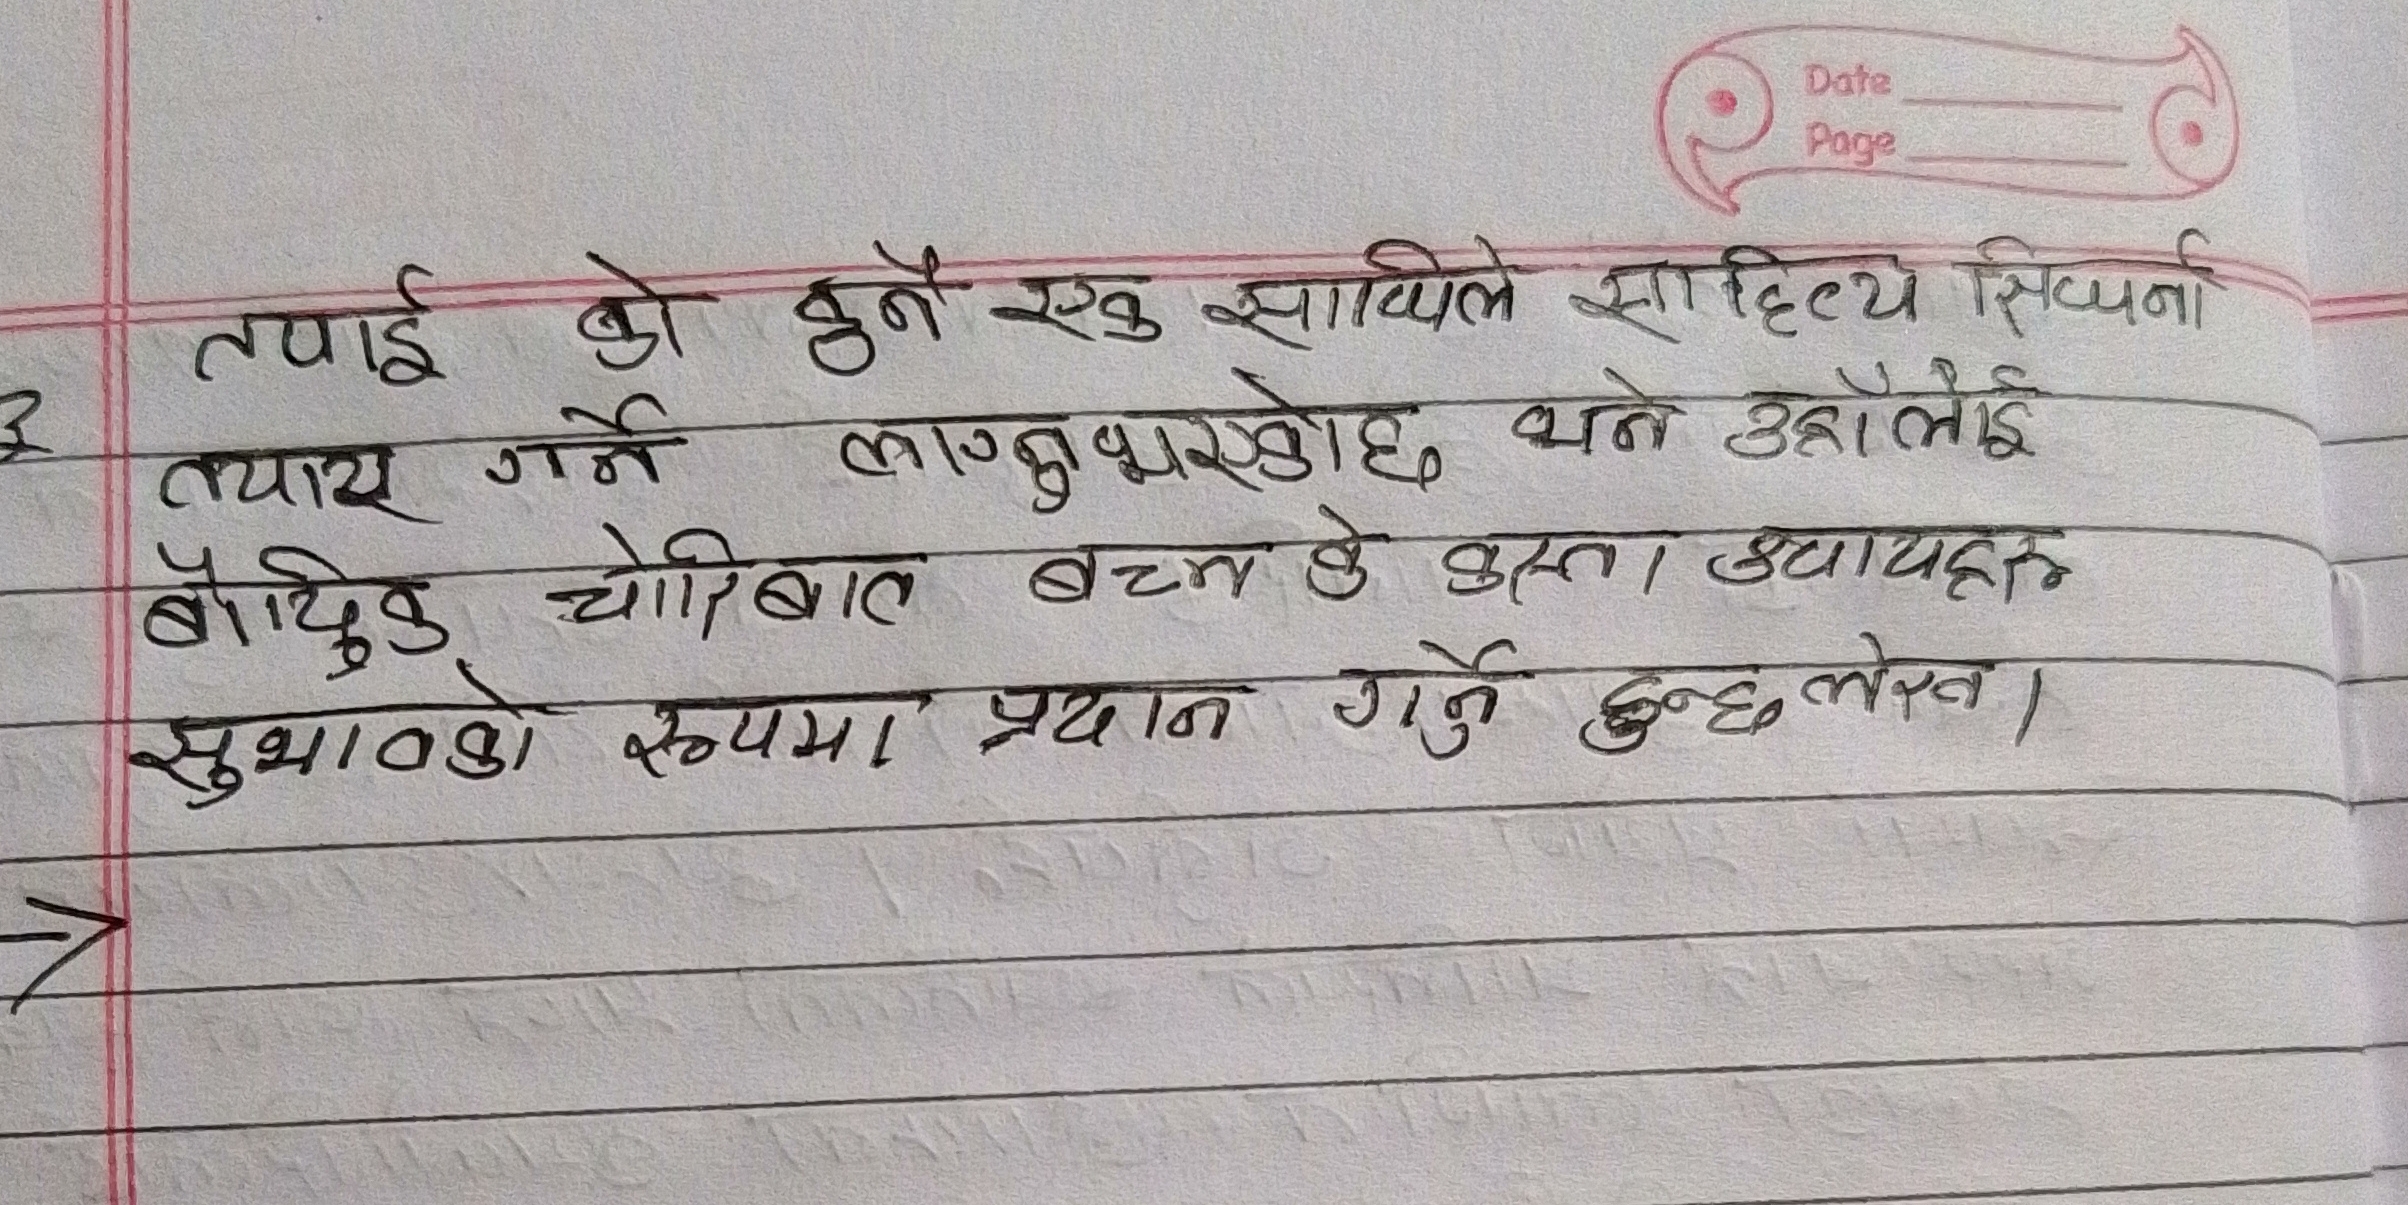 Date
Page
तपाई को कुनै एक साथिले साहित्य सिर्जना
3 तयार गर्ने लाग्नुभएकोछ भने उहाँलाई
बौध्दिक चोरिबाट बच्न के कस्ता उपायहरू
सुझावको रूपमा प्रदान गर्नु हुन्छ लेख्न।
→